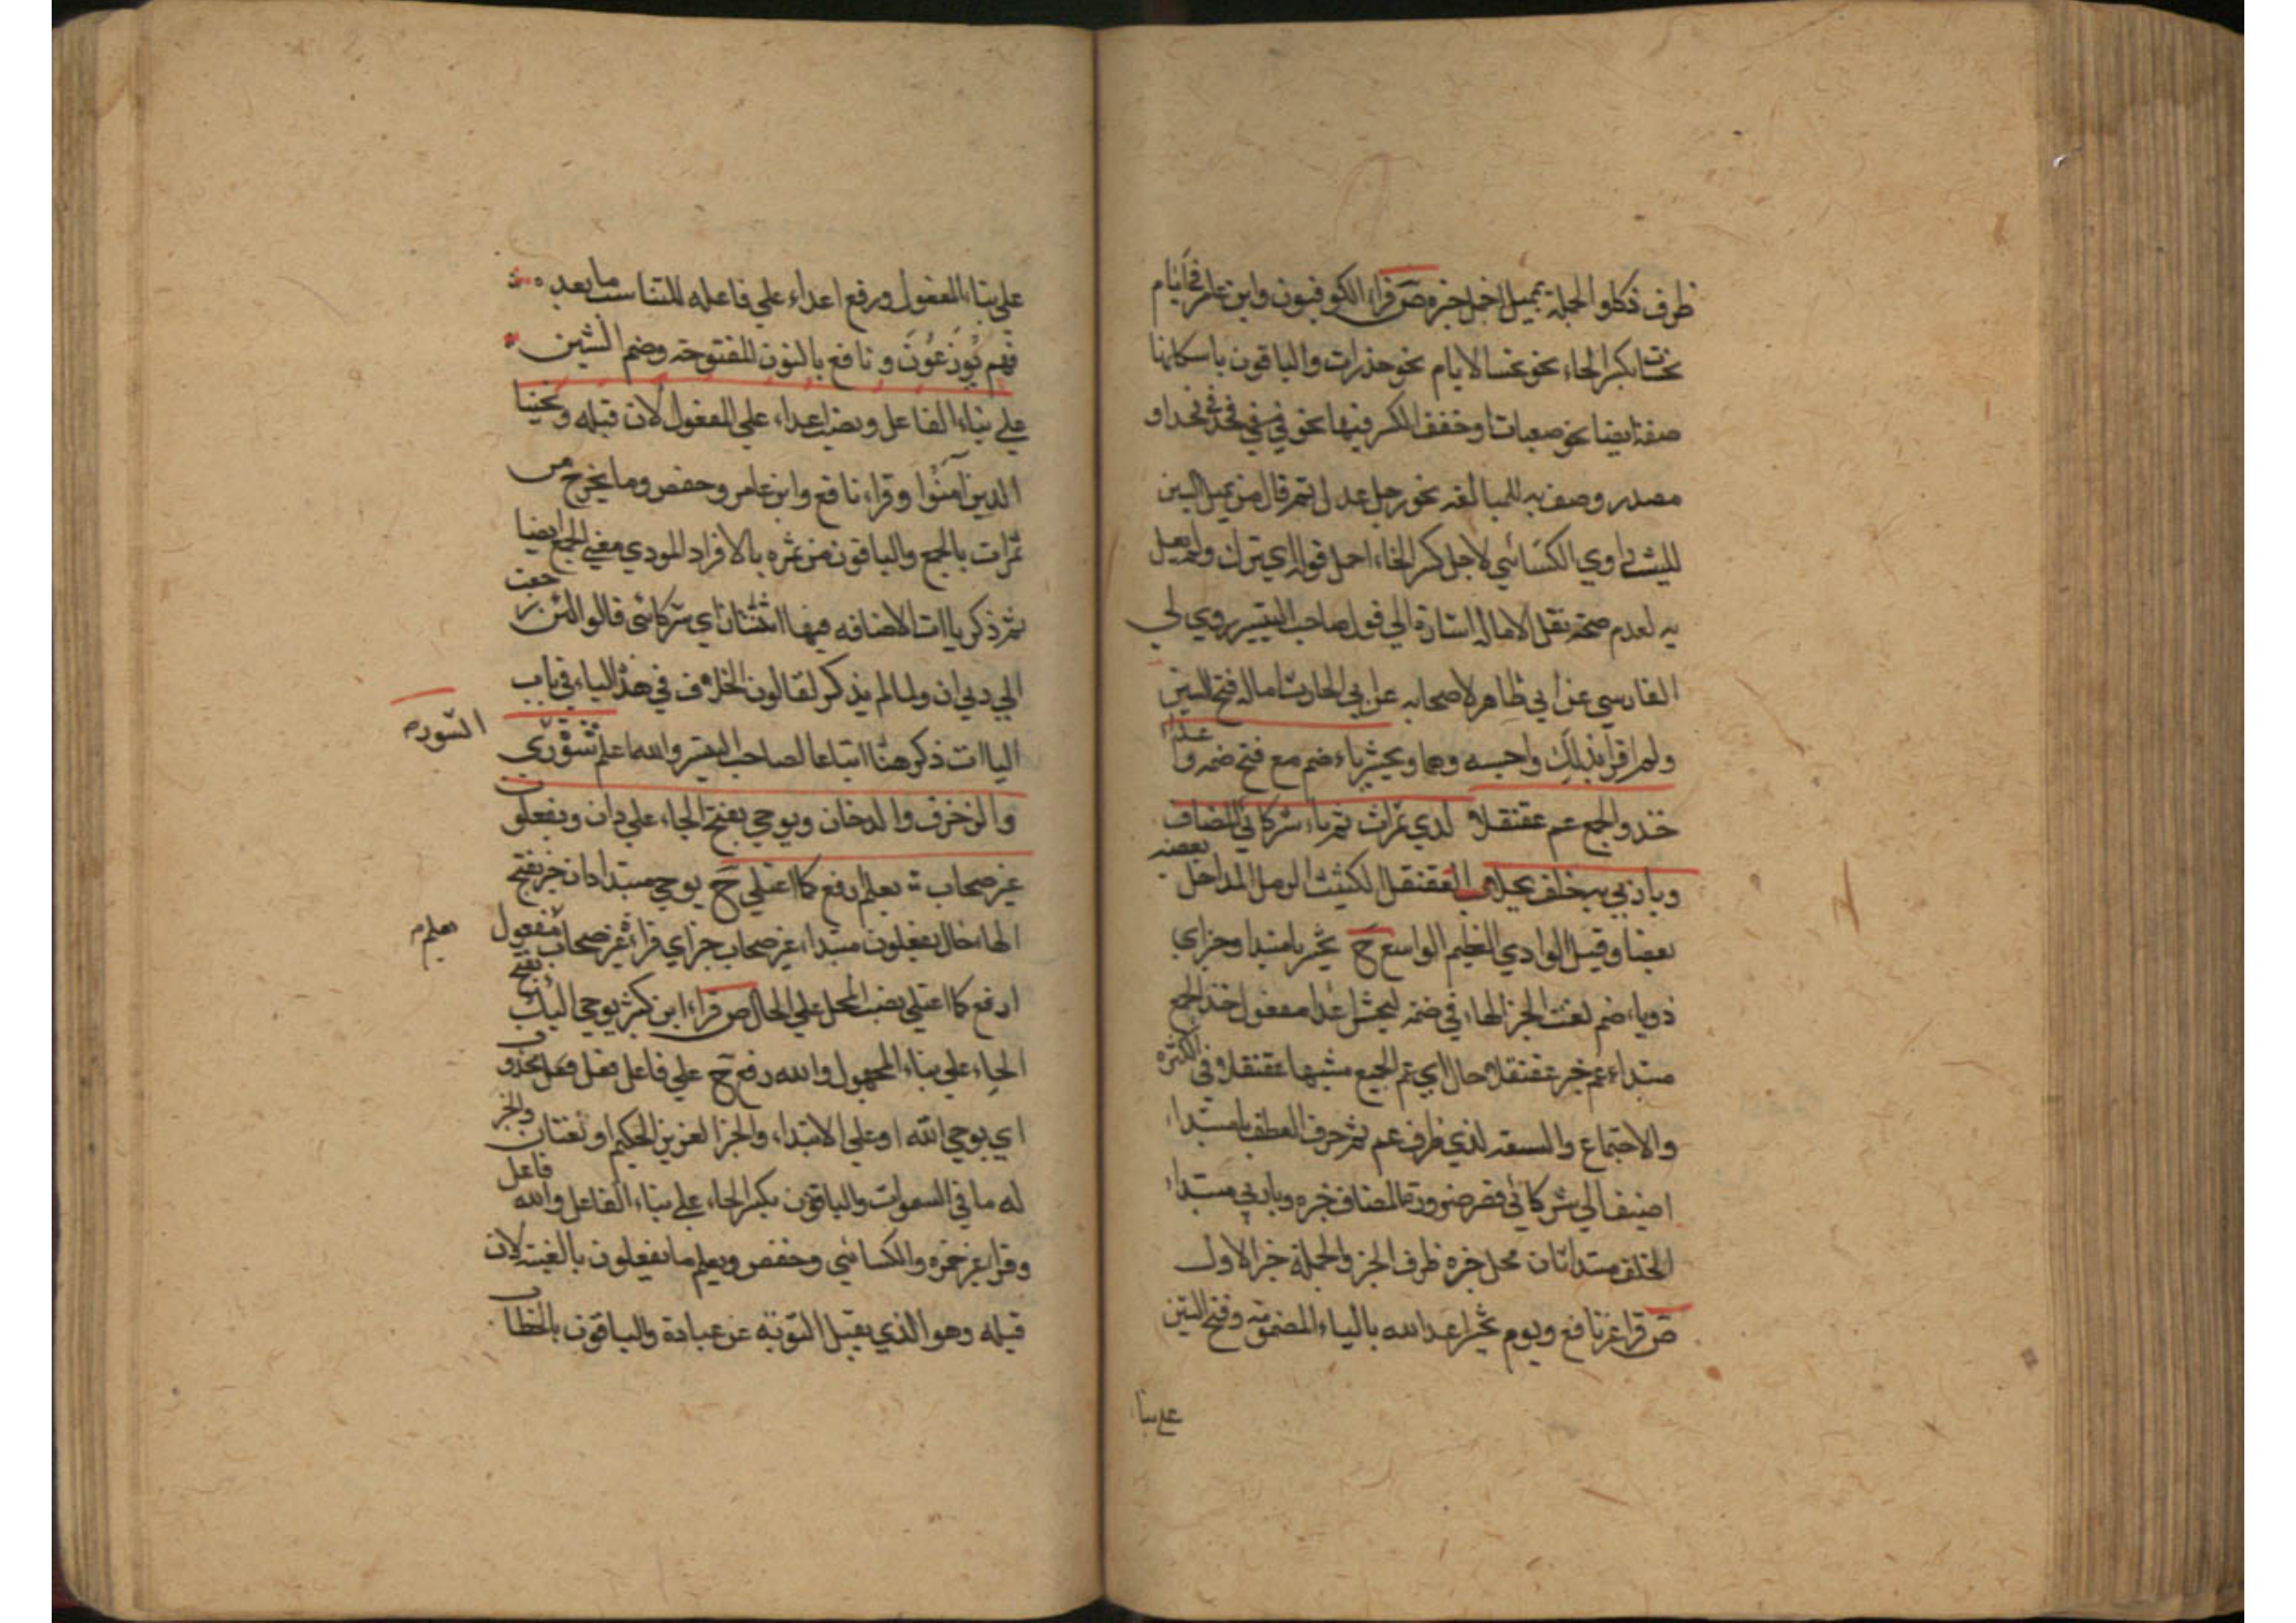 ظرف ذكا والجملة بمميل اخمل خبره ص قراء الكوفيون وابن عامر في ايام
نحسات بكسر الحاء نحو نحسا لايام نحو حذرات والباقون باسكانها
صفة ايضا نحو صعبات او خفف الكسر فيها نحو في فخذ فخذ او
مصدر وصف به للمبالغه نحو رجل عدل ثم قال من يميل السين
لليث راوي الكسائي لاجل كسر الحاء اخمل قوله اي ترك ولم يعمل
به لعدم صحة نقل الاماله اشارة الي قول صاحب التيسير روي لي
الفارسي عن ابي طاهر لاصحابه عن ابي الحارث اماله فتح السين
ولم اقرا بذلك واحسبه وهما ونحشر ياء ضم مع فتح ضمه وا عداء
خذ والجمع عم عقنقلا لدي ثمرات ثم ياء شركائي المضاف
ويا ربي به خلف بجلا العقنقل الكثيب الرمل المداخل بعضه
بعضا وقيل الوادي العظيم الواسع ح نحشر يا مبتدا وجزاي
ذو ياء ضم نعت الخبر الهاء في ضمه لنحشر اعدا مفعول خذ الجمع
مبتداء عم خبر عقنقلا حال اي عم الجمع مشبها عقنقلا في الكثره
والاجتماع والسعة لدي ظرف عم ثم حرف العطف يا مبتداء
اضيف الي شركائي قصر ضرورة المضاف خبره ويا ربي مبتداء
الخلف مبتدا ثان محل خبره ظرف الخبر والجملة خبر الاول
ص قرا غير نافع ويوم يحشر اعداء الله بالياء المضمومة وفتح الشين
علي بناء
علي بناء المفعول ورفع اعداء علي فاعله للتناسب ما بعده
فهم يوزعون و نافع بالنون المفتوحة وضم الشين
علي بناء الفاعل ونصب اعداء علي المفعول لان قبله ونجينا
الذين آمنوا وقراء نافع وابن عامر وحفص وما يخرج من
ثمرات بالجمع والباقون من ثمره بالافراد المودي معني الجمع ايضا
ثم ذكر ياات الاضافه فيها اثنتان اي شركائي قالوا لئن رجعت
الي ربي ان ولما لم يذكر لقالون الخلاف في هذا الياء في باب
الياات ذكر هنا اتباعا لصاحب التيسير والله اعلم شوري
السورة
والزخرف والدخان ويوحي بفتح الحاء علي دان ويفعلون
غير صحاب يعلم ارفع كما اعتلي ح يوحي مبتدا دان خبر بفتح
الهاء حال يفعلون مبتداء غير صحاب خبر اي قراءة غير صحاب مفعول
يعلم
ارفع كما اعتلي نصب المحل علي الحال ص قراء ابن كثير يوحي اليك بفتح
الحاء علي بناء المجهول والله رفع ح علي فاعل فعل فعل محذوف
اي يوحي الله او علي الابتداء والخبر العزيز الحكيم او نعتان والخبر
له ما في السموات والباقون بكسر الحاء علي بناء الفاعل والله فاعل
وقرا غير حمزه والكسائي وحفص ويعلم ما يفعلون بالغيبة لان
قبله وهو الذي يقبل التوبة عن عباده والباقون بالخطاب